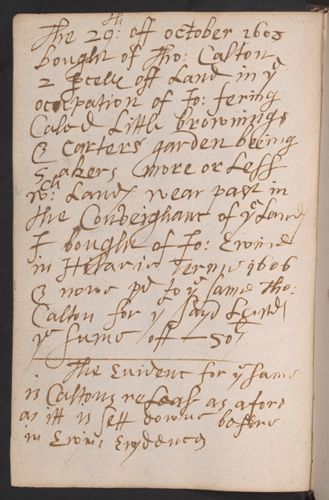 The 29th: off october 1603
bought of Tho: Calton
2 pcells off Land in ye
ocupation of Jo: fering
Caled Little brownings
& Carters garden being
5 akers more or Less
wch Lands wear past in
the Conveighanc of ye Land
I bought of Jo: Ewin
in Hilarie Terme 1606
& more pd to ye same Tho:
Calton for ye sayd Land
ye sume off — 50l
The Evident for ye same
is Caltons releas as afore
as itt is sett downe before
in Ewins Evydences